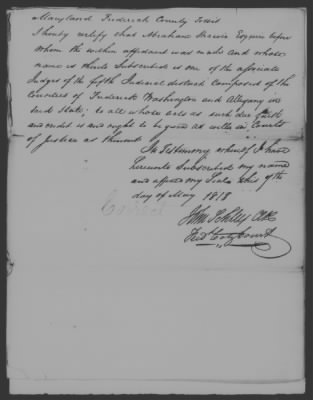 Maryland Frederick County Towit
I hereby certify that Abraham Shriver Esquire before
whom the within affidavit was made and whose
name is thereto Subscribed is one of the associate
Judges of the fifth Judicial district composed of the
Counties of Frederick Washington and Allegany in
Said State; to all whose acts as such due faith
and credit is and ought to be given as well in Courts
of Justice as thereout
In Testimony whereof I have
hereunto Subscribed my name
and affixed my Seal this 9th
day of May 1818
John Schley Clk
Fredk Coty Court